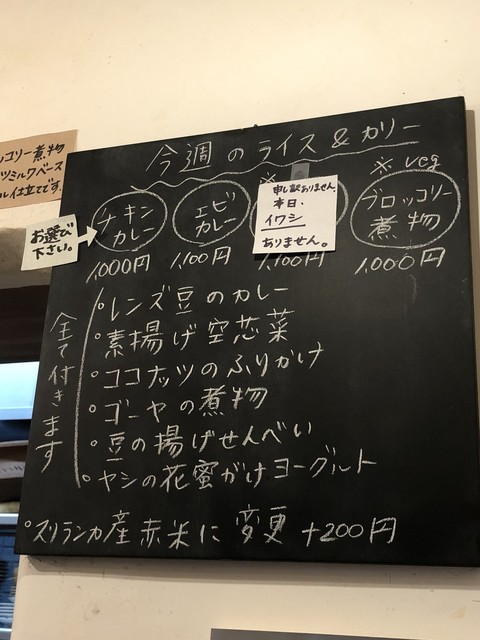 ッコリー煮物
ツミルクベース
ル仕立てです。
今週のライス&カリー
お選び
下さい。
チキン
カレー
1,000円
エビ
カレー
1,100円
申し訳ありません
本日、
イワシ
ありません。
1,100円
※ veg
ブロッコリー
煮物
1,000円
全て付きます
°レンズ豆のカレー
°素揚げ空芯菜
°ココナッツのふりかけ
°ゴーヤの煮物
°豆の揚げせんべい
°ヤシの花蜜がけヨーグルト
°スリランカ産赤米に変更 +200円